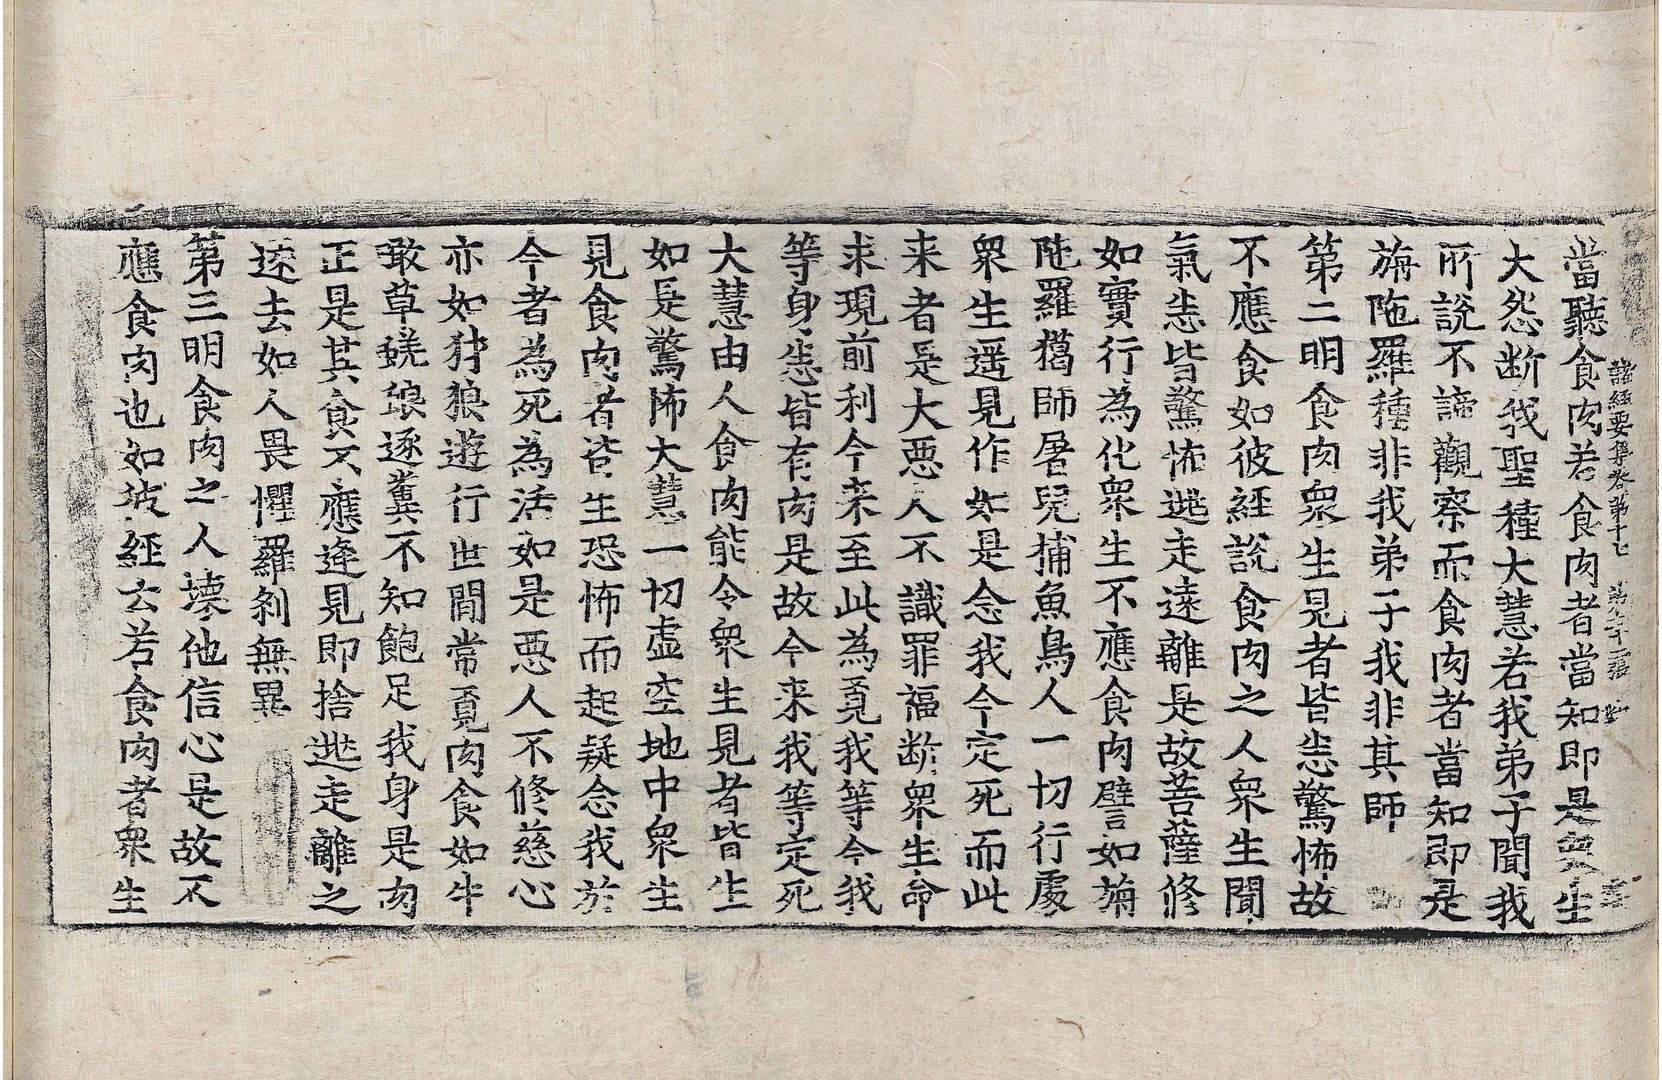 當聽食肉若食肉者當知即是衆生
諸經要集卷第十七 第二十二張
大怨断我聖種大慧若我弟子聞我
所說不諦觀察而食肉者當知即是
旃陁羅種非我弟子我非其師
第二明食肉衆生見者皆悉驚怖故
不應食如彼經說食肉之人衆生聞
氣悉皆驚怖逃走遠離是故菩薩修
如實行為化衆生不應食肉譬如旃
陁羅獦師屠兒捕魚鳥人一切行處
衆生遥見作如是念我今定死而此
来者是大悪人不識罪福断衆生命
求現前利今来至此為覔我等今我
等身悉皆有肉是故今来我等定死
大慧由人食肉能令衆生見者皆生
如是驚怖大慧一切虚空地中衆生
見食肉者皆生恐怖而起疑念我於
今者為死為活如是悪人不修慈心
亦如犲狼遊行世間常覔肉食如牛
噉草蜣蜋逐糞不知飽足我身是肉
正是其食不應逢見即捨逃走離之
逺去如人畏懼羅剎無異
第三明食肉之人壊他信心是故不
應食肉也如彼經云若食肉者衆生